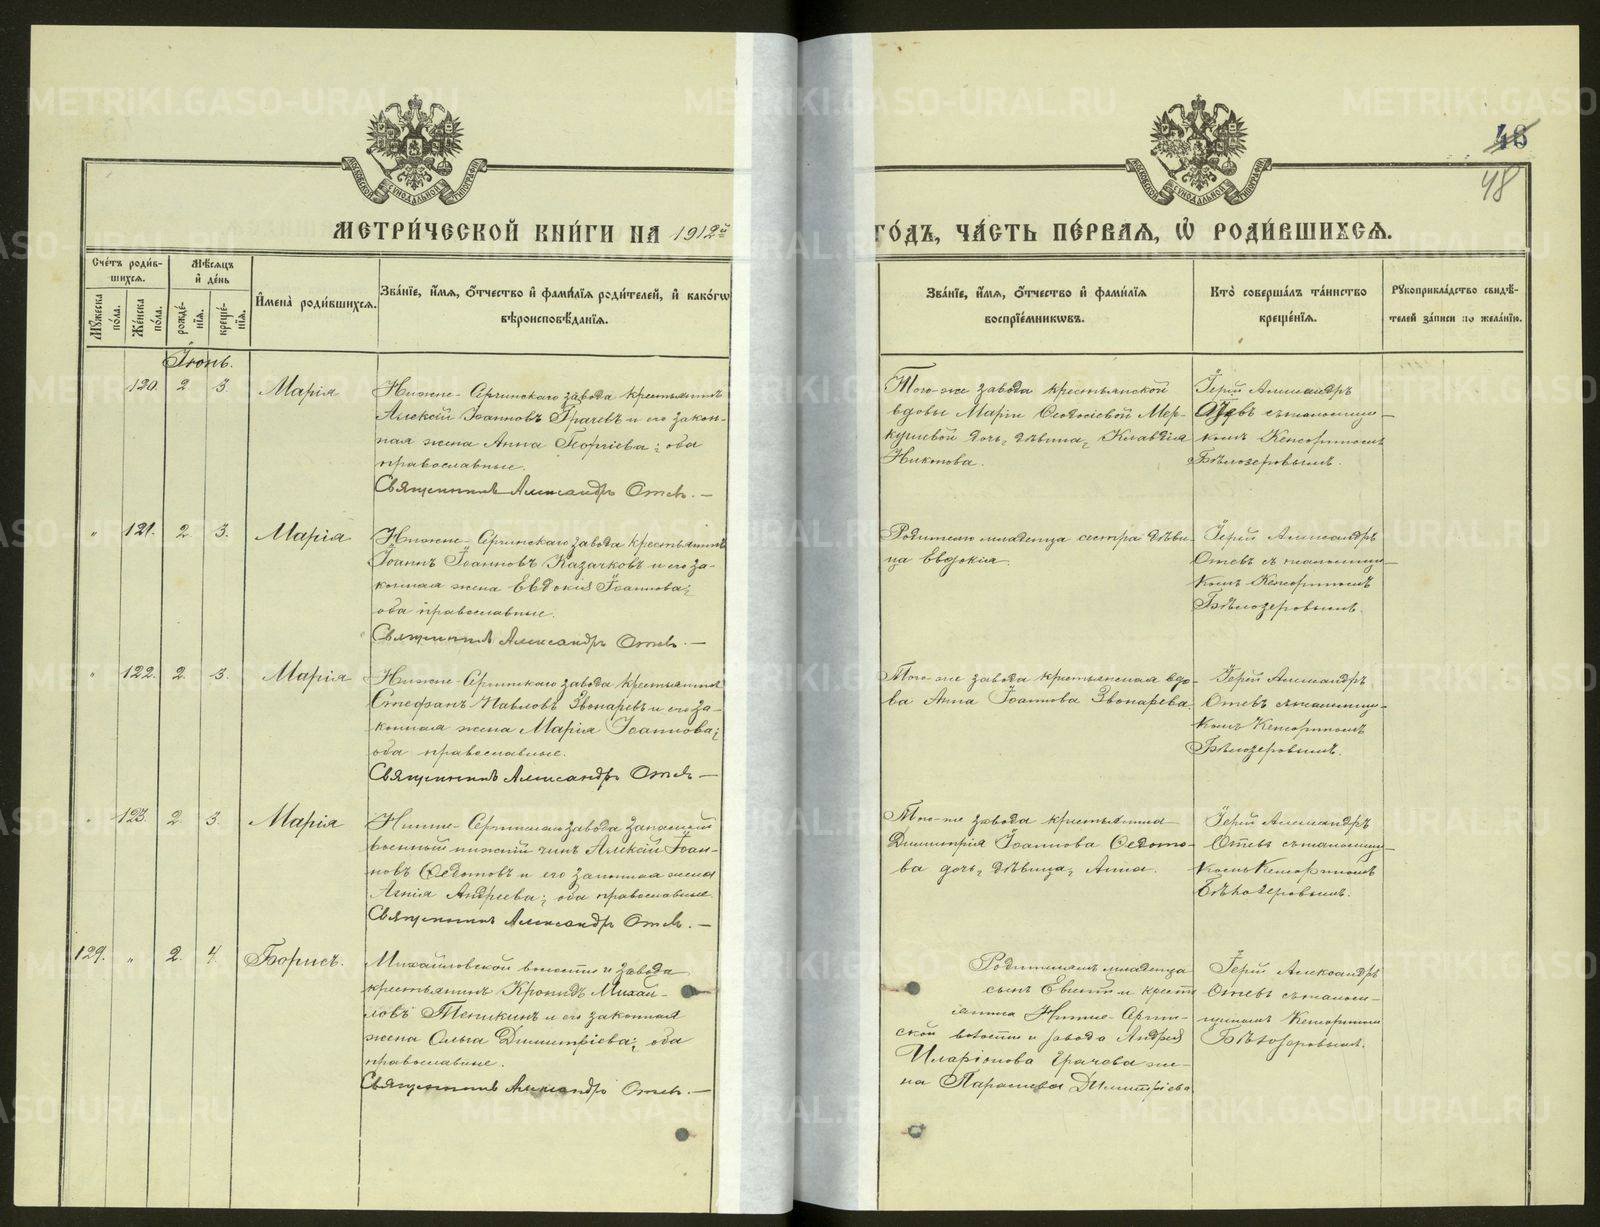 46
48
МЕТРИ́ЧЕСКОЙ КНИ́ГИ НА 1912й ГО́ДЪ, ЧА́СТЬ ПЕ́РВАЯ, Ѡ РОДИ́ВШИХСЯ.
Сче́тъ роди́в-
шихся.
Му́жеска по́ла.
Же́нска по́ла.
Мѣ́сяцъ
и́ де́нь
рожде́-
нїя.
креще́-
нїя.
И́мена̀ роди́вшихся.
Зва́нїе, и́мя, о́тчество и́ фами́лїя роди́телей, и́ како́гѡ
вѣроисповѣ́данїя.
Зва́нїе, и́мя, о́тчество и́ фами́лїя
воспрїе́мникѡвъ.
Кто̀ соверша́лъ та́инство
креще́нїя.
Рукоприкла́дство свидѣ́-
телей за́писи по жела́нїю.
Іюнь.
120. 2. 3. Марія
Нижне-Сергинскаго завода крестьянинъ
Алексій Іоанновъ Грачевъ и его закон-
ная жена Анна Георгіева; оба
православные.
Священникъ Александръ Отевъ. —
Того-же завода крестьянской
вдовы Маріи Ѳеодосіевой Мер-
кушевой дочь, дѣвица, Клавдія
Никонова.
Іерей Александръ
Отевъ съ псаломщи-
комъ Кенсориномъ
Бѣлозеровымъ.
" 121. 2. 3. Марія
Нижне-Сергинскаго завода крестьянинъ
Іоаннъ Іоанновъ Казачковъ и его за-
конная жена Евдокія Іоаннова;
оба православные.
Священникъ Александръ Отевъ. —
Родителю младенца сестра дѣви-
ца Евдокія.
Іерей Александръ
Отевъ съ псаломщи-
комъ Кенсориномъ
Бѣлозеровымъ.
" 122. 2. 3. Марія
Нижне-Сергинскаго завода крестьянинъ
Стефанъ Павловъ Звонаревъ и его за-
конная жена Марія Іоаннова;
оба православные.
Священникъ Александръ Отевъ —
Того-же завода крестьянская вдо-
ва Анна Іоаннова Звонарева.
Іерей Александръ
Отевъ съ псаломщи-
комъ Кенсориномъ
Бѣлозеровымъ.
" 123. 2. 3. Марія
Нижне-Сергинскаго завода запасный
военный нижній чинъ Алексій Іоан-
новъ Ѳедотовъ и его законная жена
Агнія Андреева; оба православные.
Священникъ Александръ Отевъ. —
Того-же завода крестьянина
Димитрія Іоаннова Ѳедото-
ва дочь, дѣвица, Анна.
Іерей Александръ
Отевъ съ псаломщи-
комъ Кенсориномъ
Бѣлозеровымъ.
129. " 2. 4. Борисъ.
Михайловской волости и завода
крестьянинъ Кронидъ Михай-
ловъ Тепикинъ и его законная
жена Ольга Димитріева; оба
православные.
Священникъ Александръ Отевъ. —
Родителямъ младенца
сынъ Евгеній и крестья-
янина Нижне-Сергин-
ской волости и завода Андрея
Иларіонова Грачева же-
на Параскева Димитріева
Іерей Александръ
Отевъ съ псалом-
щикомъ Кенсориномъ
Бѣлозеровымъ.
METRIKI.GASO-URAL.RU